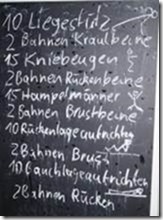 10 Liegestütz
2 Bahnen Kraulbeine
15 Kniebeugen
2 Bahnen Rückenbeine
15 Hampelmänner
2 Bahnen Brustbeine
10 Rückenlageaufrichten
2 Bahnen Brust
10 Bauchlageaufrichten
2 Bahnen Rücken